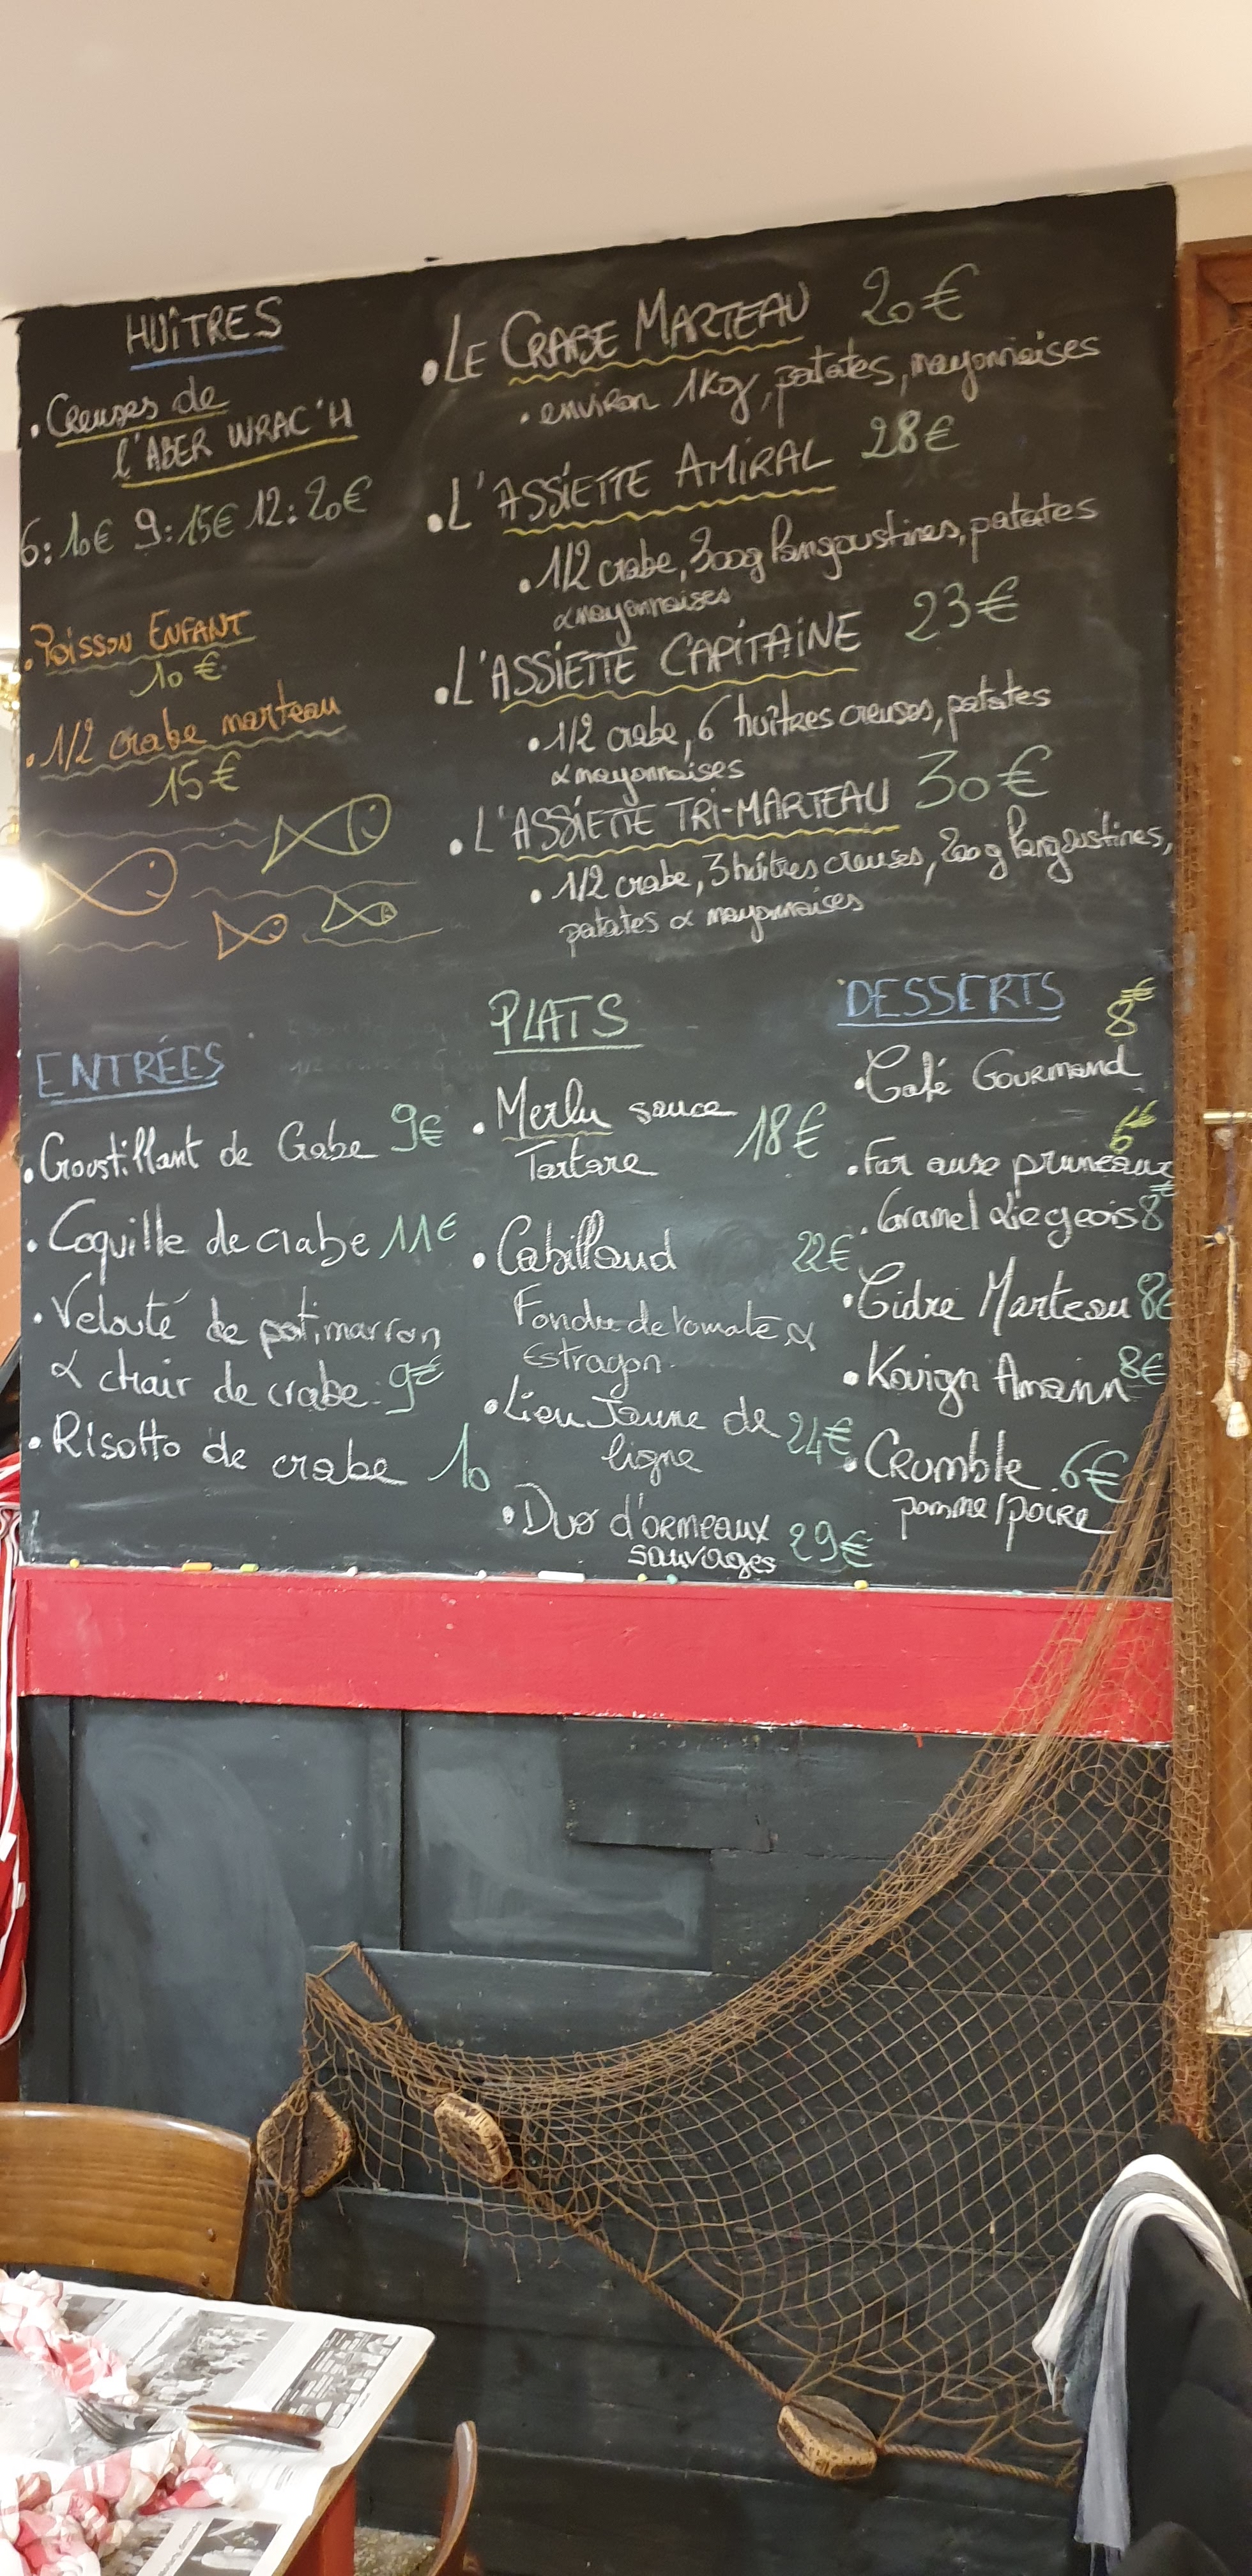 HUÎTRES
. Creuses de
l'ABER WRAC'H
6: 10€ 9: 15€ 12: 20€
. POISSON ENFANT
10 €
. 1/2 crabe marteau
15€
. LE CRABE MARTEAU 20€
. environ 1kg, patates, mayonnaises
. L'ASSIETTE AMIRAL 28€
. 1/2 crabe, 300g langoustines, patates
& mayonnaises
. L'ASSIETTE CAPITAINE 23€
. 1/2 crabe, 6 huîtres creuses, patates
& mayonnaises
. L'ASSIETTE TRI-MARTEAU 30€
. 1/2 crabe, 3 huîtres creuses, 200g langoustines,
patates & mayonnaises
ENTRÉES
. Croustillant de Crabe 9€
. Coquille de crabe 11€
. Velouté de potimarron
& chair de crabe 9€
. Risotto de crabe 10
PLATS
. Merlu sauce
Tartare 18€
. Cabillaud 22€
Fondue de tomate &
Estragon.
. Lieu Jaune de 24€
ligne
. Duo d'ormeaux
sauvages 29€
DESSERTS
8€
. Café Gourmand
6€
. Far aux pruneaux
. Caramel Liegeois 8€
. Cidre Marteau 8€
. Kouign Amann 8€
. Crumble 6€
pomme/poire